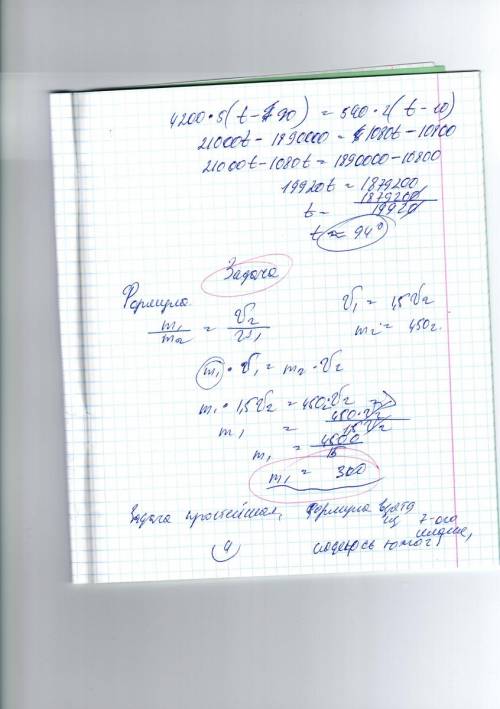 4200 • 5(t - 90) = 540 • 2(t - 10)
21000t - 1890000 = 1080t - 10800
21000t - 1080t = 1890000 - 10800
19920t = 1879200
t = 1879200 / 19920
t ≈ 94°
Задача
Формула
m₁/m₂ = v₂/v₁
v₁ = 1,5v₂
m₂ = 450г.
m₁ • v₁ = m₂ • v₂
m₁ • 1,5v₂ = 450 • v₂
m₁ = 450 • v₂ / 1,5v₂
m₁ = 4500 / 15
m₁ = 300
Задача простейшая, формула взята
из 7-ого
надеюсь помог